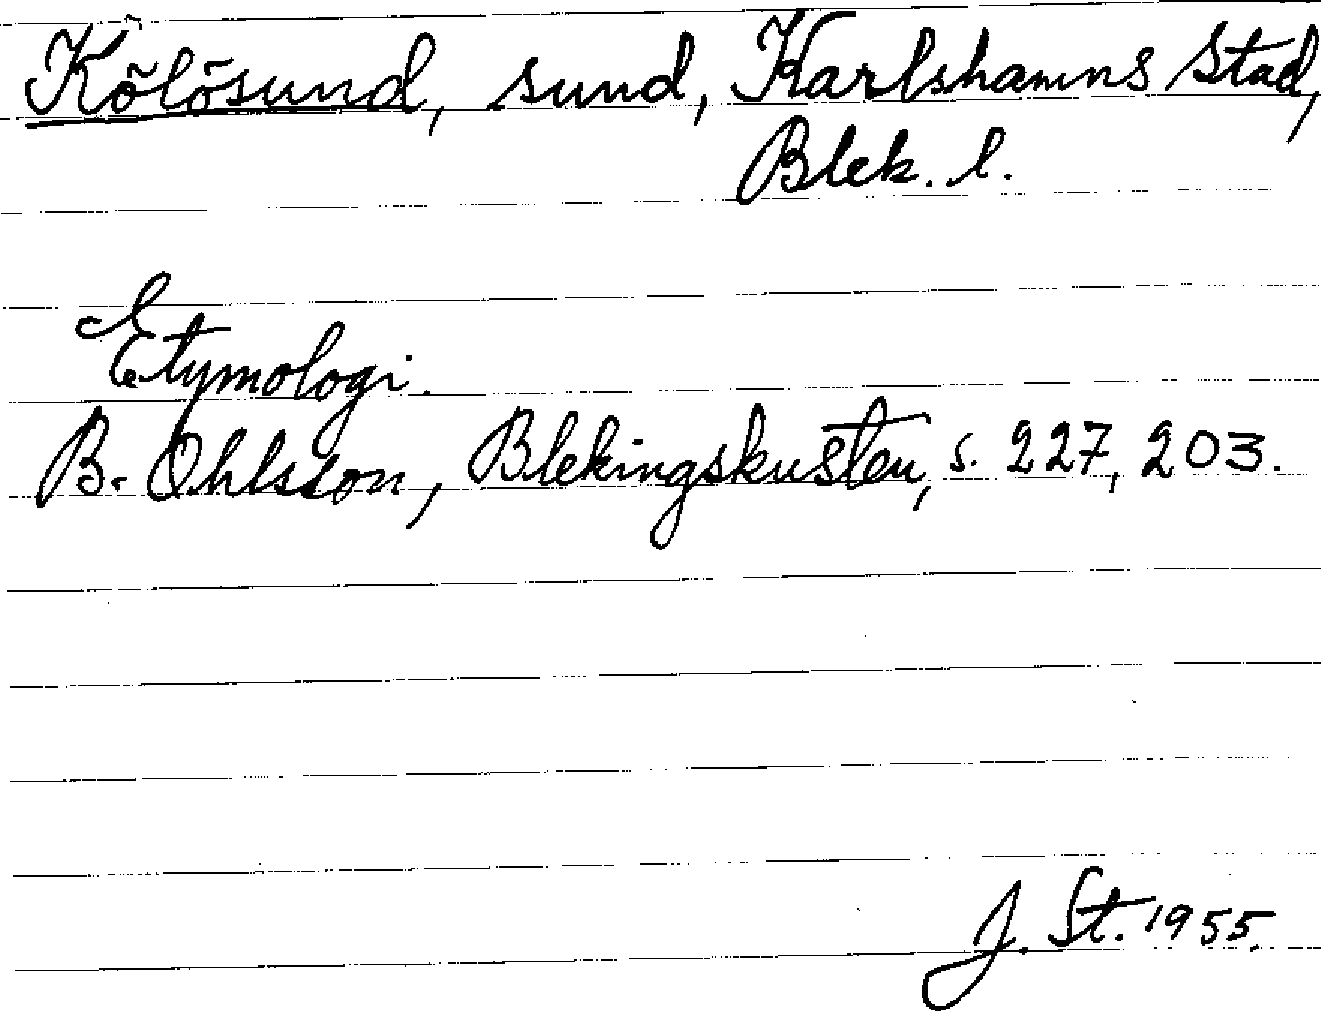 Kölösund, sund, Karlshamns stad,
Blek. l.
Etymologi.
B. Ohlsson, Blekingskusten, s. 227, 203.
J. St. 1955.